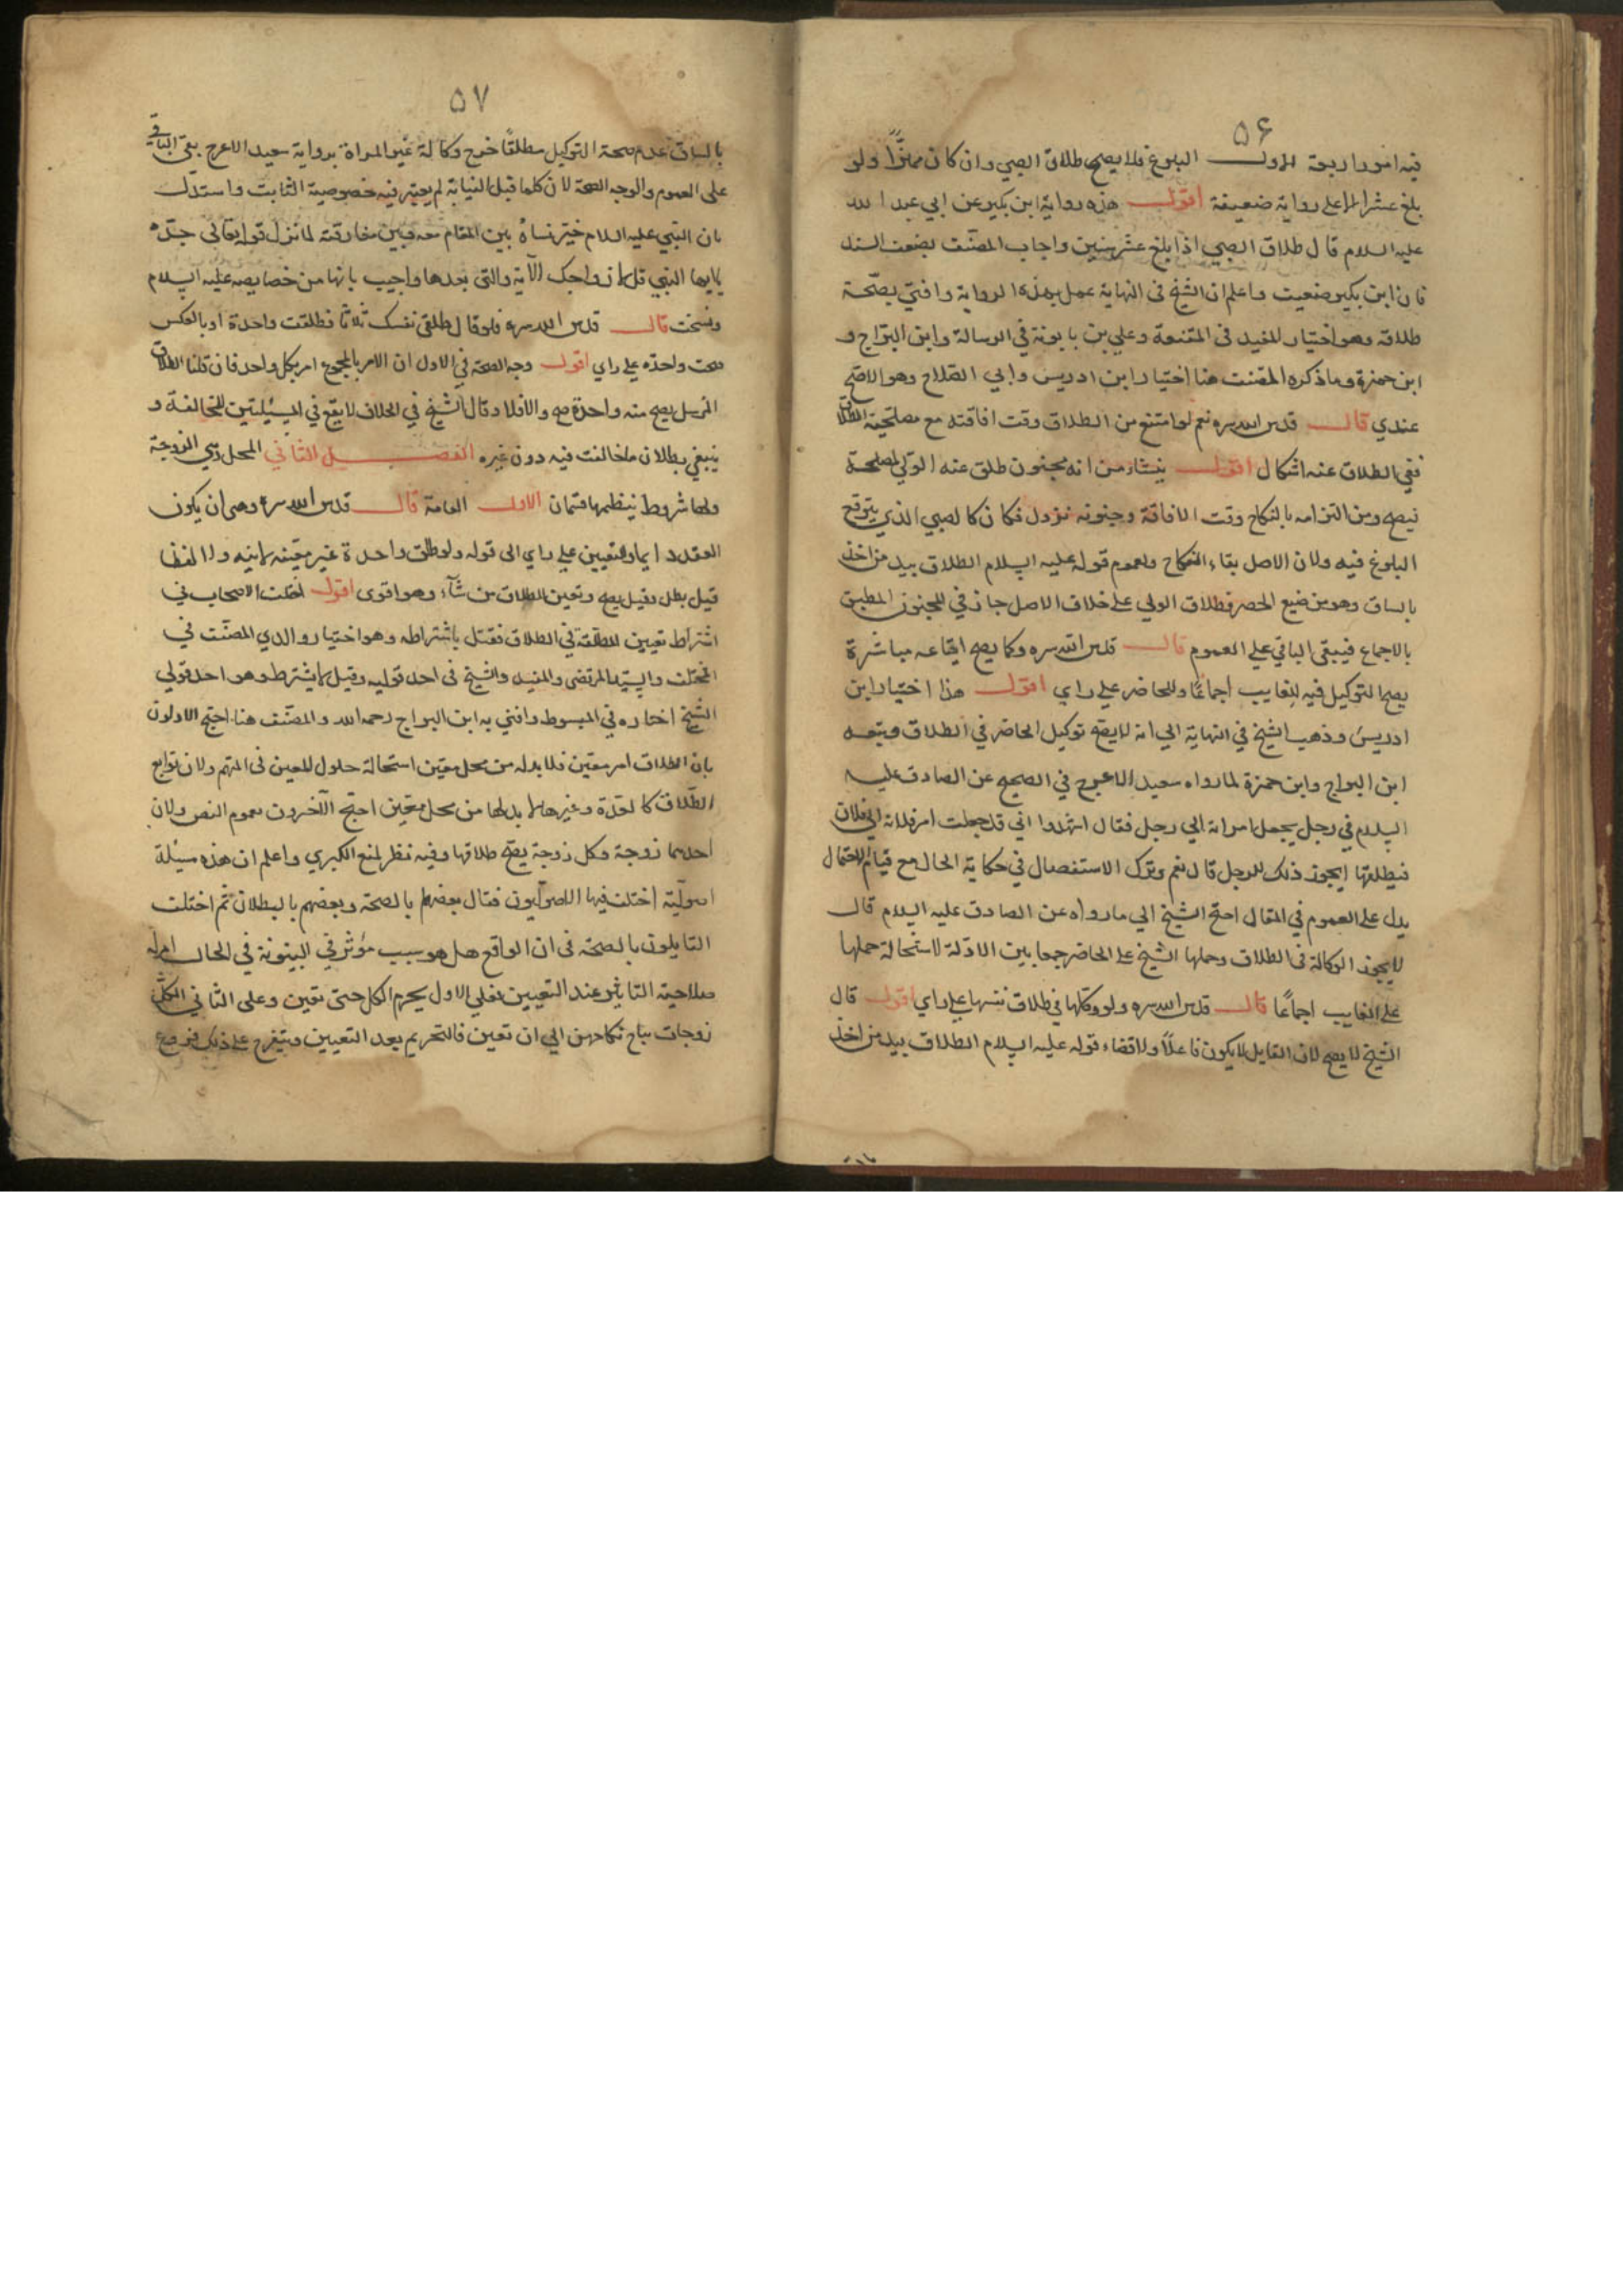 ۵۶
فيه امور اربعة الاول البلوغ فلا يصح طلاق الصبي وان كان مميزًا ولو
بلغ عشرا الا على رواية ضعيفة اقول هذه رواية ابن بكير عن ابي عبد الله
عليه السلام قال طلاق الصبي اذا بلغ عشر سنين واجاب المصنّف بضعف السند
فان ابن بكير ضعيف واعلم ان الشيخ في النهاية عمل بهذه الرواية وافتى بصحّة
طلاقه وهو اختيار المفيد في المقنعة وعلي بن بابويه في الرسالة وابن البرّاج و
ابن حمزة وما ذكره المصنف هنا اختيار ابن ادريس وابي الصّلاح وهو الاصحّ
عندي قال قدس الله سره نعم لو امتنع من الطلاق وقت افاقته مع مصلحة الطلاق
ففي الطلاق عنه اشكال اقول ينشأ من انه مجنون طلق عنه الولي لمصلحة
فيصح ومن التزامه بالنكاح وقت الافاقة وجنونه نزول فكان كالصبي الذي يتوقع
البلوغ فيه ولان الاصل بقاء النكاح ولعموم قوله عليه السلام الطلاق بيد من اخذ
بالساق وهو من صيغ الحصر فطلاق الولي على خلاف الاصل جاز في المجنون المطبق
بالاجماع فيبقى الباقي على العموم قال قدس الله سره وكما يصح ايقاعه مباشرة
يصح التوكيل فيه للغايب اجماعًا وللحاضر على راي اقول هذا اختيار ابن
ادريس وذهب الشيخ في النهاية الى انه لا يصح توكيل الحاضر في الطلاق وتبعه
ابن البراج وابن حمزة لما رواه سعيد الاعرج في الصحيح عن الصادق عليه
السلام في رجل يجعل امراته الي رجل فقال اشهدوا اني قد جعلت امر فلانة الى فلان
فيطلقها ايجوز ذلك للرجل قال نعم وترك الاستفصال في حكاية الحال مع قيام الاحتمال
يدل على العموم في المقال احتج الشيخ الي ما رواه عن الصادق عليه السلام قال
لا يجوز الوكالة في الطلاق وحملها الشيخ على الحاضر جمعا بين الادّلة لاستحالة حملها
على الغايب اجماعًا قال قدس الله سره ولو وكلها في طلاق نفسها على راي اقول قال
الشيخ لا يصح لان القابل لا يكون فاعلًا ولاقتضاء قوله عليه السلام الطلاق بيد من اخذ
۵۷
بالساق عدم صحة التوكيل مطلقًا خرج وكالة غير المراة برواية سعيد الاعرج بقي الباقي
على العموم والوجه الصحة لان كلما قبل النيابة لم يعتبر فيه خصوصية النايب واستدل
بان النبي عليه السلام خيّر نساءه بين المقام معه وبين مفارقته لما نزل قوله تعالى جدّه
يايها النبي قل لازواجك الآية والتي بعدها واجيب بانها من خصايصه عليه السلام
ونسخت قال قدس الله سره فلو قال طلقي نفسك ثلاثا فطلقت واحدة او بالعكس
صحت واحدة على راي اقول وجه الصحة في الاول ان الامر بالمجموع امر بكل واحد فان قلنا الطلاق
المرسل يصح منه واحدة صح والا فلا وقال الشيخ في الخلاف لا يقع في المسئلتين للمخالفة و
ينبغي بطلان ما خالفت فيه دون غيره الفصل الثاني المحل وهي الزوجة
ولها شروط ينظمها قسمان الاول العامة قال قدس الله سره وهي ان يكون
العقد دايما والتعيين على راي الى قوله ولو طلق واحدة غير معيّنة لا نية ولا لفظا
قيل بطل وقيل يصح ويعين للطلاق من شآء وهو اقوى اقول اختلف الاصحاب في
اشتراط تعيين المطلقة في الطلاق فقيل باشتراطه وهو اختيار والدي المصنّف في
المختلف والسيد المرتضى والمفيد والشيخ في احد قوليه وقيل لا يشترط وهو احد قولي
الشيخ اختاره في المبسوط وافتي به ابن البراج رحمه الله والمصنف هنا احتج الاولون
بان الطلاق امر معيّن فلا بد له من محل معيّن استحالة حلول المعين في المبهم ولان توابع
الطّلاق كالعدّة وغيرها لا بد لها من محل معيّن احتج الآخرون بعموم النص ولان
احداهما زوجة وكل زوجة يصح طلاقها وفيه نظر لمنع الكبري واعلم ان هذه مسئلة
اصوليّة اختلف فيها الاصوليون فقال بعضهم بالصحة وبعضهم بالبطلان ثم اختلف
القايلون بالصحة في ان الواقع هل هو سبب مؤثر في البينونة في الحال ام له
صلاحية التاثير عند التعيين فعلي الاول يحرم الكل حتى تعين وعلى الثاني الكل
زوجات يباح نكاحهن الي ان تعين فالتحريم بعد التعيين ويتفرع على ذلك فروع